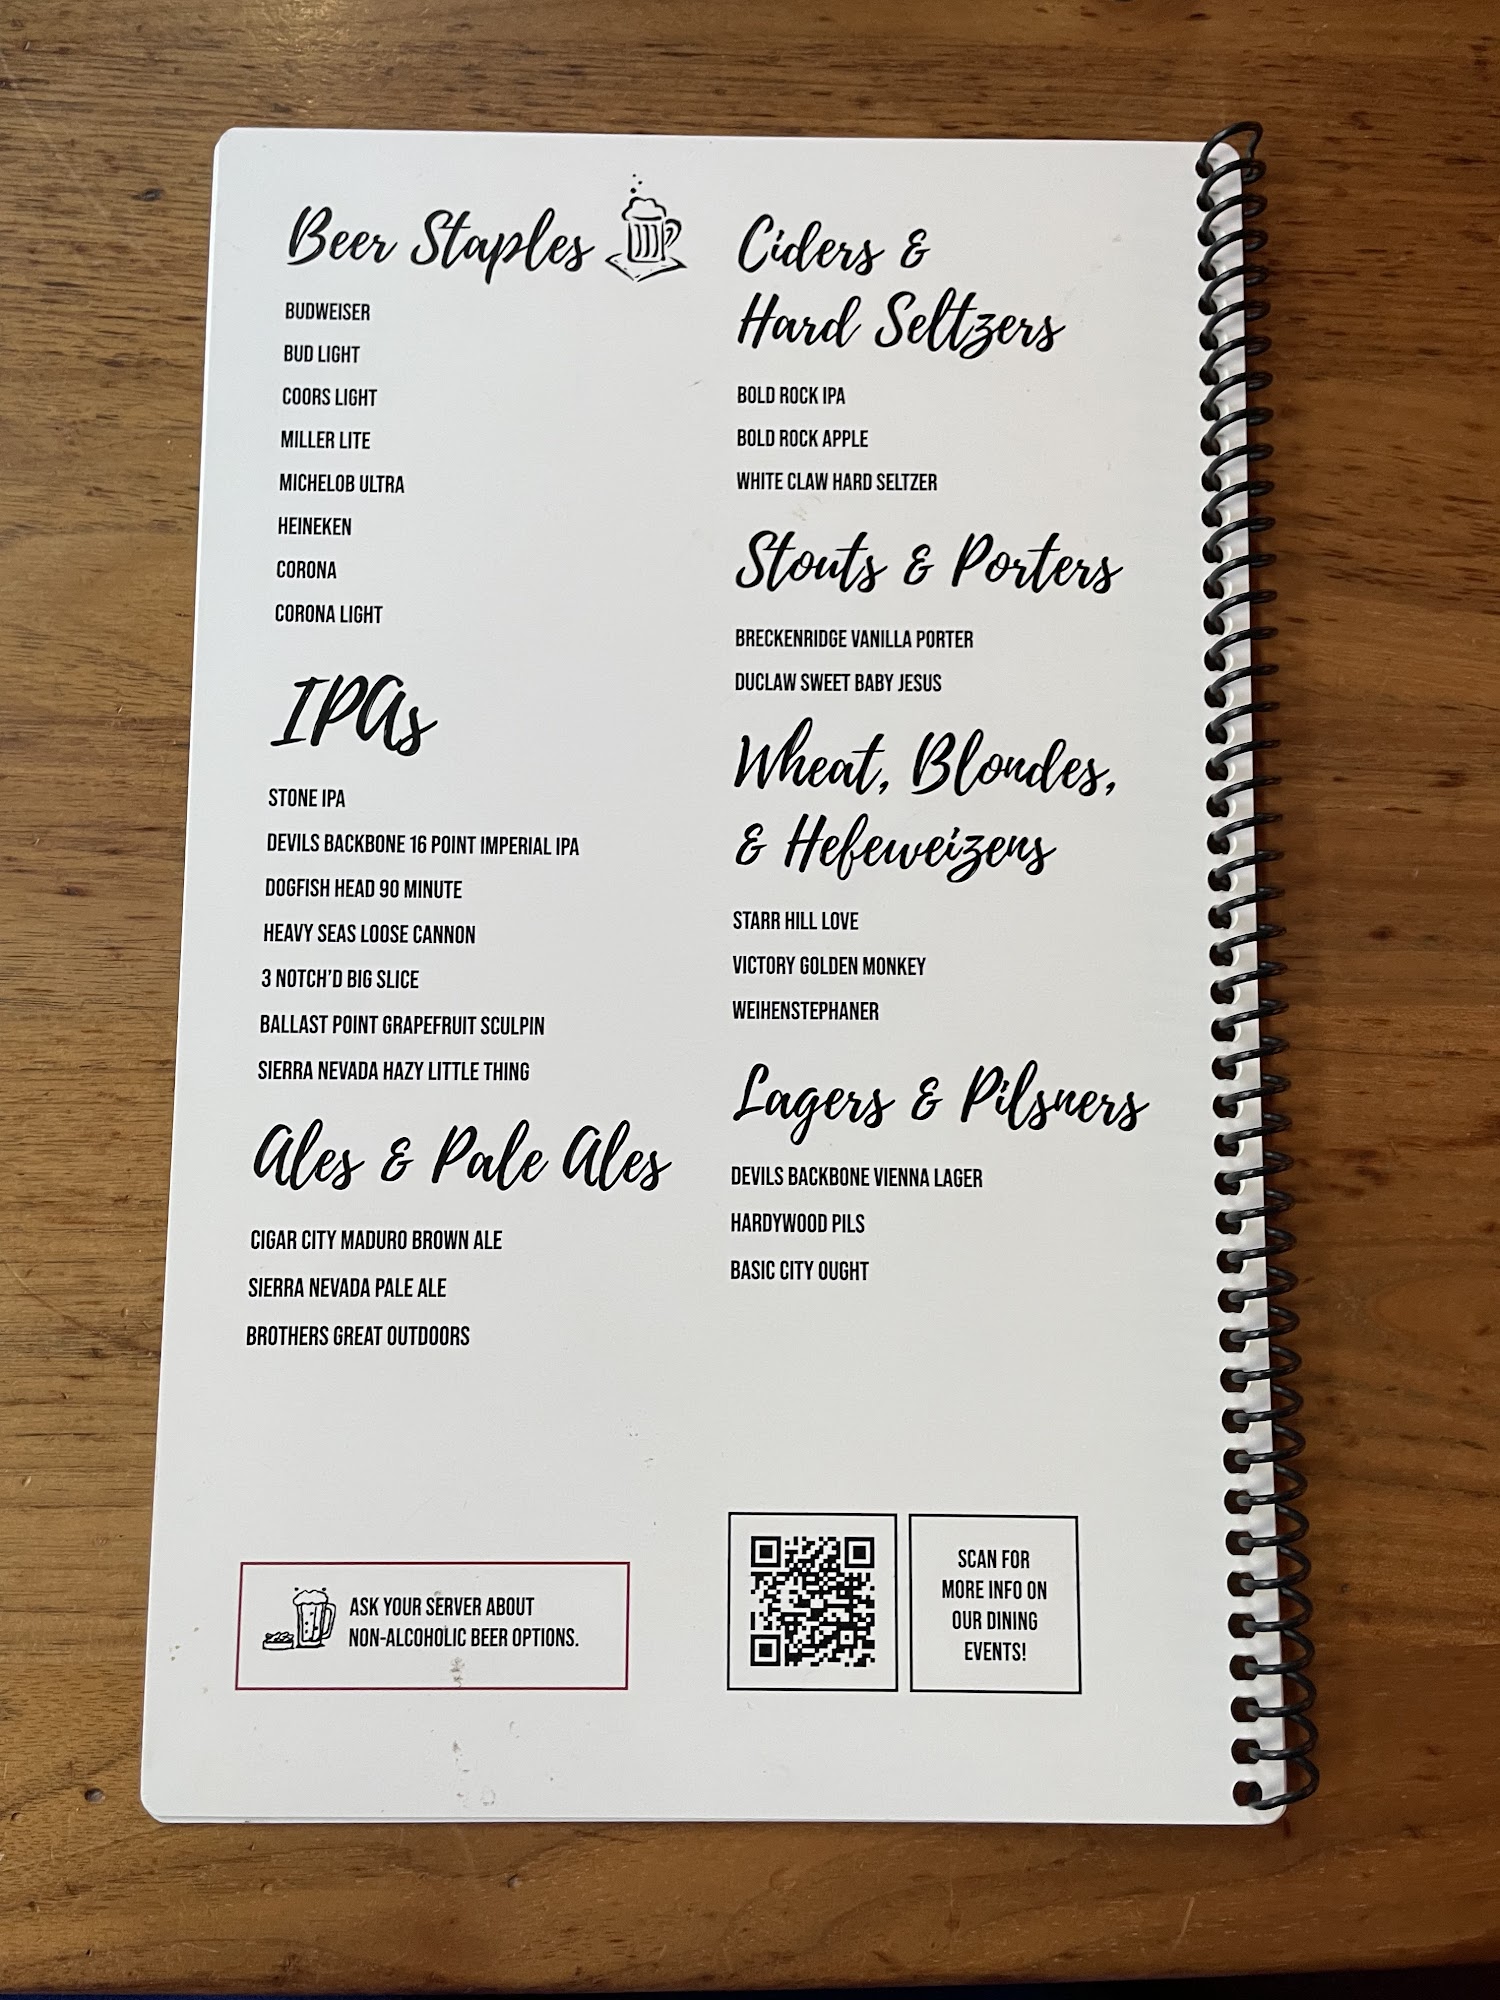 Beer Staples
BUDWEISER
BUD LIGHT
COORS LIGHT
MILLER LITE
MICHELOB ULTRA
HEINEKEN
CORONA
CORONA LIGHT
IPAs
STONE IPA
DEVILS BACKBONE 16 POINT IMPERIAL IPA
DOGFISH HEAD 90 MINUTE
HEAVY SEAS LOOSE CANNON
3 NOTCH'D BIG SLICE
BALLAST POINT GRAPEFRUIT SCULPIN
SIERRA NEVADA HAZY LITTLE THING
Ales & Pale Ales
CIGAR CITY MADURO BROWN ALE
SIERRA NEVADA PALE ALE
BROTHERS GREAT OUTDOORS
ASK YOUR SERVER ABOUT
NON-ALCOHOLIC BEER OPTIONS.
Ciders &
Hard Seltzers
BOLD ROCK IPA
BOLD ROCK APPLE
WHITE CLAW HARD SELTZER
Stouts & Porters
BRECKENRIDGE VANILLA PORTER
DUCLAW SWEET BABY JESUS
Wheat, Blondes,
& Hefeweizens
STARR HILL LOVE
VICTORY GOLDEN MONKEY
WEIHENSTEPHANER
Lagers & Pilsners
DEVILS BACKBONE VIENNA LAGER
HARDYWOOD PILS
BASIC CITY OUGHT
SCAN FOR
MORE INFO ON
OUR DINING
EVENTS!